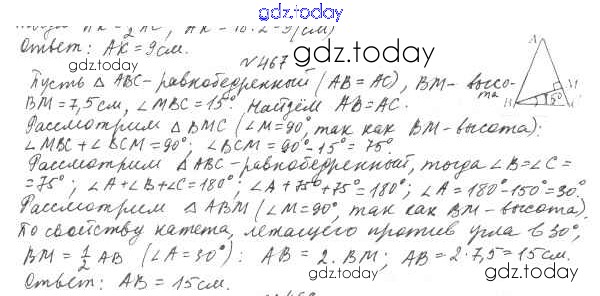 gdz.today
AK = 1/2 AC, AK = 18:2=9(см)
Ответ: AK = 9см.
№467
gdz.today
Пусть △ ABC - равнобедренный (AB = AC), BM - высота
BM = 7,5 см, ∠MBC = 15°. Найдём AB = AC.
Рассмотрим △ BMC (∠M = 90°, так как BM - высота):
∠MBC + ∠BCM = 90°; ∠BCM = 90° - 15° = 75°.
Рассмотрим △ABC - равнобедренный, тогда ∠B = ∠C =
= 75°; ∠A + ∠B + ∠C = 180°; ∠A + 75° + 75° = 180°; ∠A = 180° - 150° = 30°
Рассмотрим △ ABM (∠M = 90°, так как BM - высота).
По свойству катета, лежащего против угла в 30°,
BM = 1/2 AB (∠A = 30°): AB = 2·BM; AB = 2·7,5 = 15см.
Ответ: AB = 15см.
gdz.today
gdz.today
A
M
B
15°